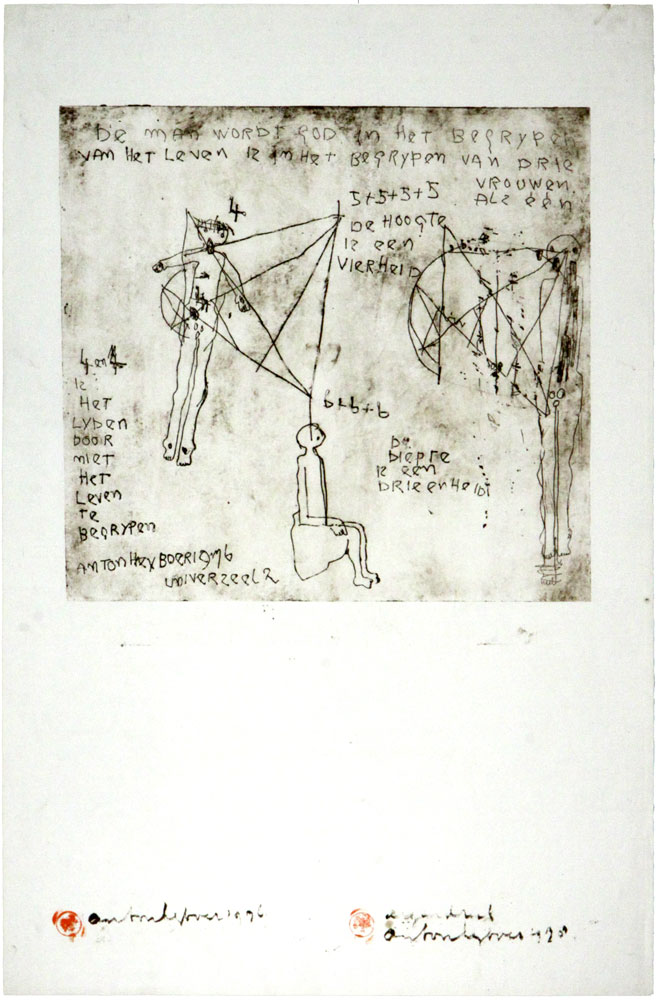 DE MAN WORDT GOD IN HET BEGRYPEN
VAN HET LEVEN IZ IN HET BEGRYPEN VAN DRIE
VROUWEN
ALZ EEN
5+5+5+5
4
DE HOOGTE
IZ EEN
VIERHEID
4 en 4
IZ
HET
LYDEN
DOOR
NIET
HET
LEVEN
TE
BEGRYPEN
6+6+6
DE
DIEPTE
IZ EEN
DRIEENHEIDT
ANTON HEYBOER 1976
UNIVERZEEL 2
anton heyboer 1976
eigendruk
anton heyboer